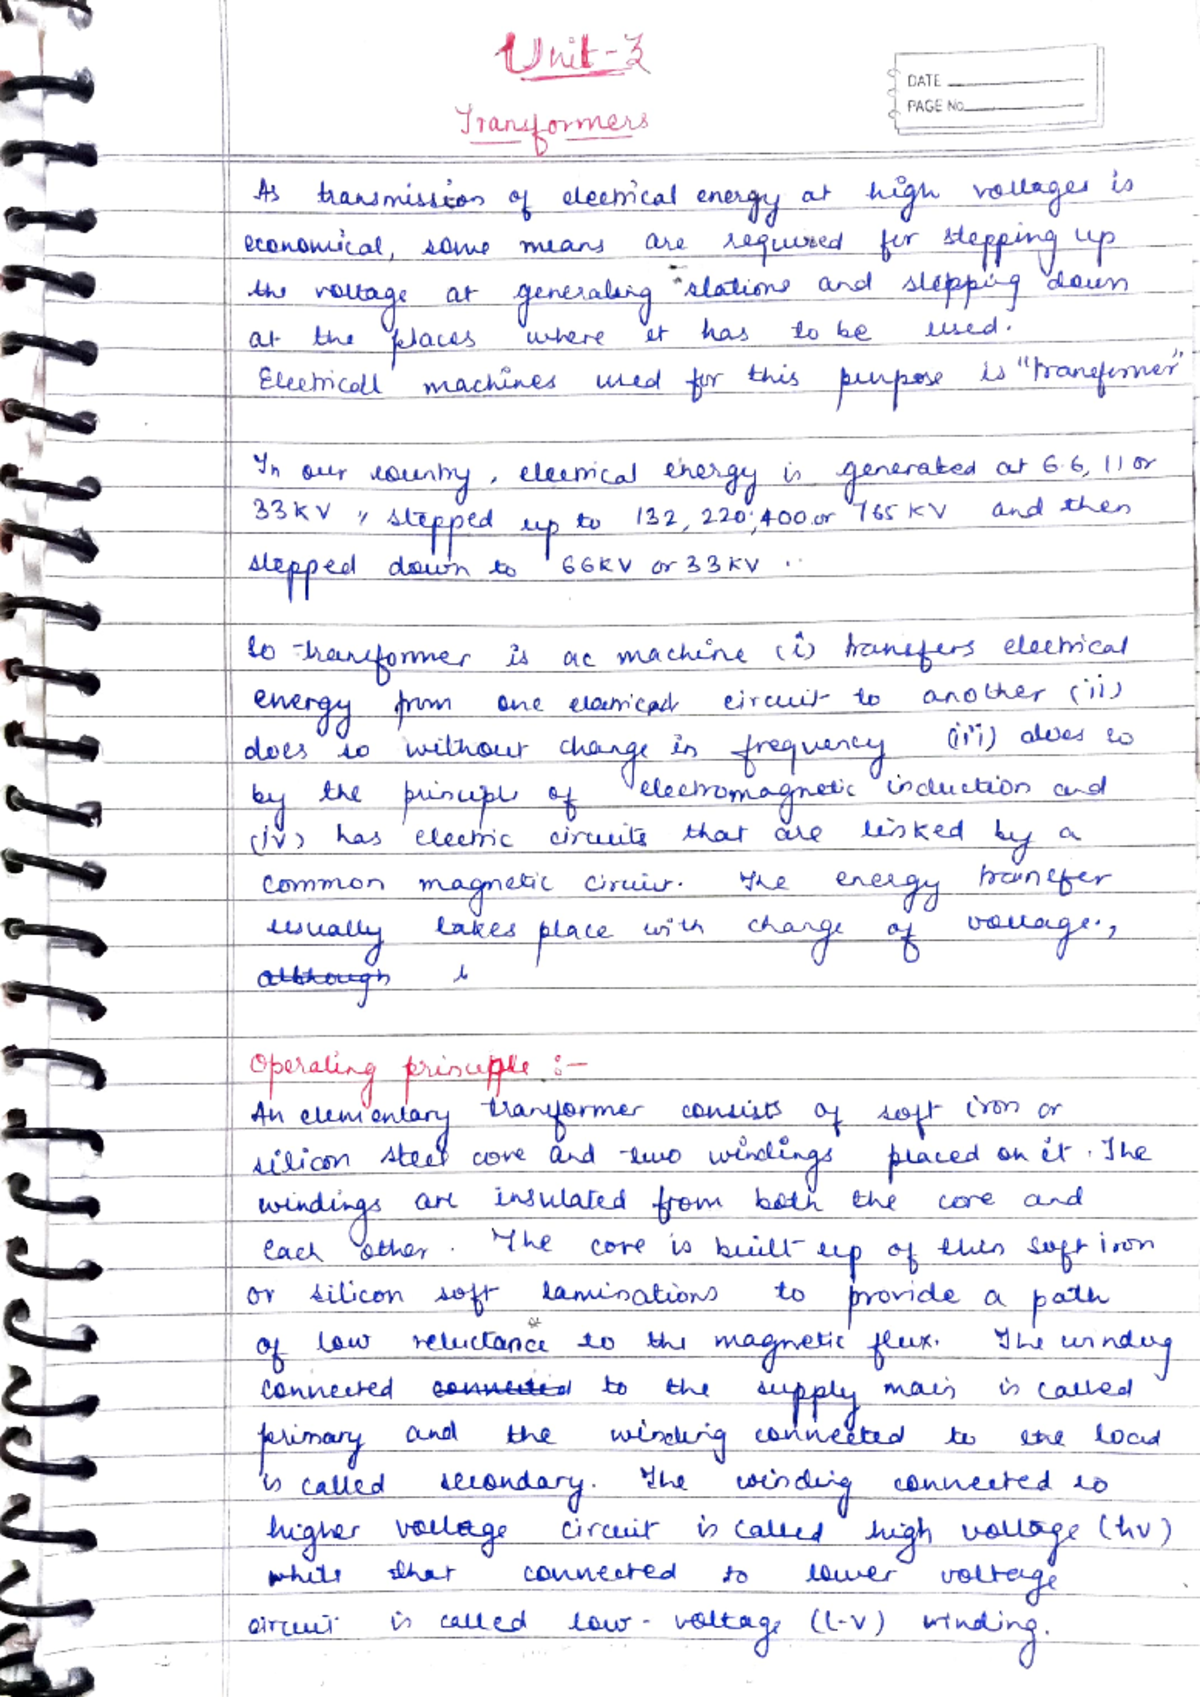 Unit-3
DATE
PAGE No.
Transformers
As transmission of electrical energy at high voltages is
economical, some means are required for stepping up
the voltage at generating stations and stepping down
at the places where it has to be used.
Electricall machines used for this purpose is "transformer"
In our country, electrical energy is generated at 6.6, 11 or
33KV, stepped up to 132, 220, 400 or 765 KV and then
stepped down to 66KV or 33KV ..
So transformer is ac machine (i) transfers electrical
energy from one electrical circuit to another (ii)
does so without change in frequency (iii) does so
by the principle of electromagnetic induction and
(iv) has electric circuits that are linked by a
common magnetic circuit. The energy transfer
usually takes place with change of voltage.,
although
Operating principle :-
An elementary transformer consists of soft iron or
silicon steel core and two windings placed on it. The
windings are insulated from both the core and
each other. The core is built up of thin soft iron
or silicon soft laminations to provide a path
of low reluctance to the magnetic flux. The winding
connected connected to the supply main is called
primary and the winding connected to the load
is called secondary. The winding connected to
higher voltage circuit is called high voltage (hv)
while that connected to lower voltage
circuit is called low-voltage (l-v) winding.